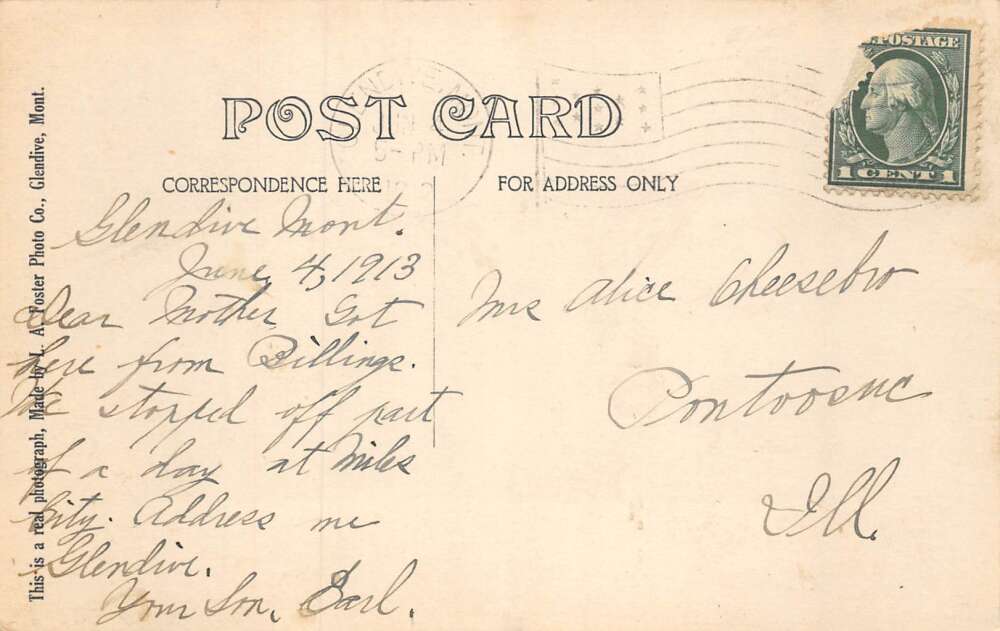 POST CARD
CORRESPONDENCE HERE
FOR ADDRESS ONLY
POSTAGE
1 CENT 1
5-PM
Glendive Mont.
June, 4, 1913
Dear Mother Got
here from Billings.
We stopped off part
of a day at Miles
City. Address me
Glendive.
Your Son, Earl.
Mrs Alice Cheesebro
Pontoosuc
Ill.
This is a real photograph, Made by L. A. Foster Photo Co., Glendive, Mont.